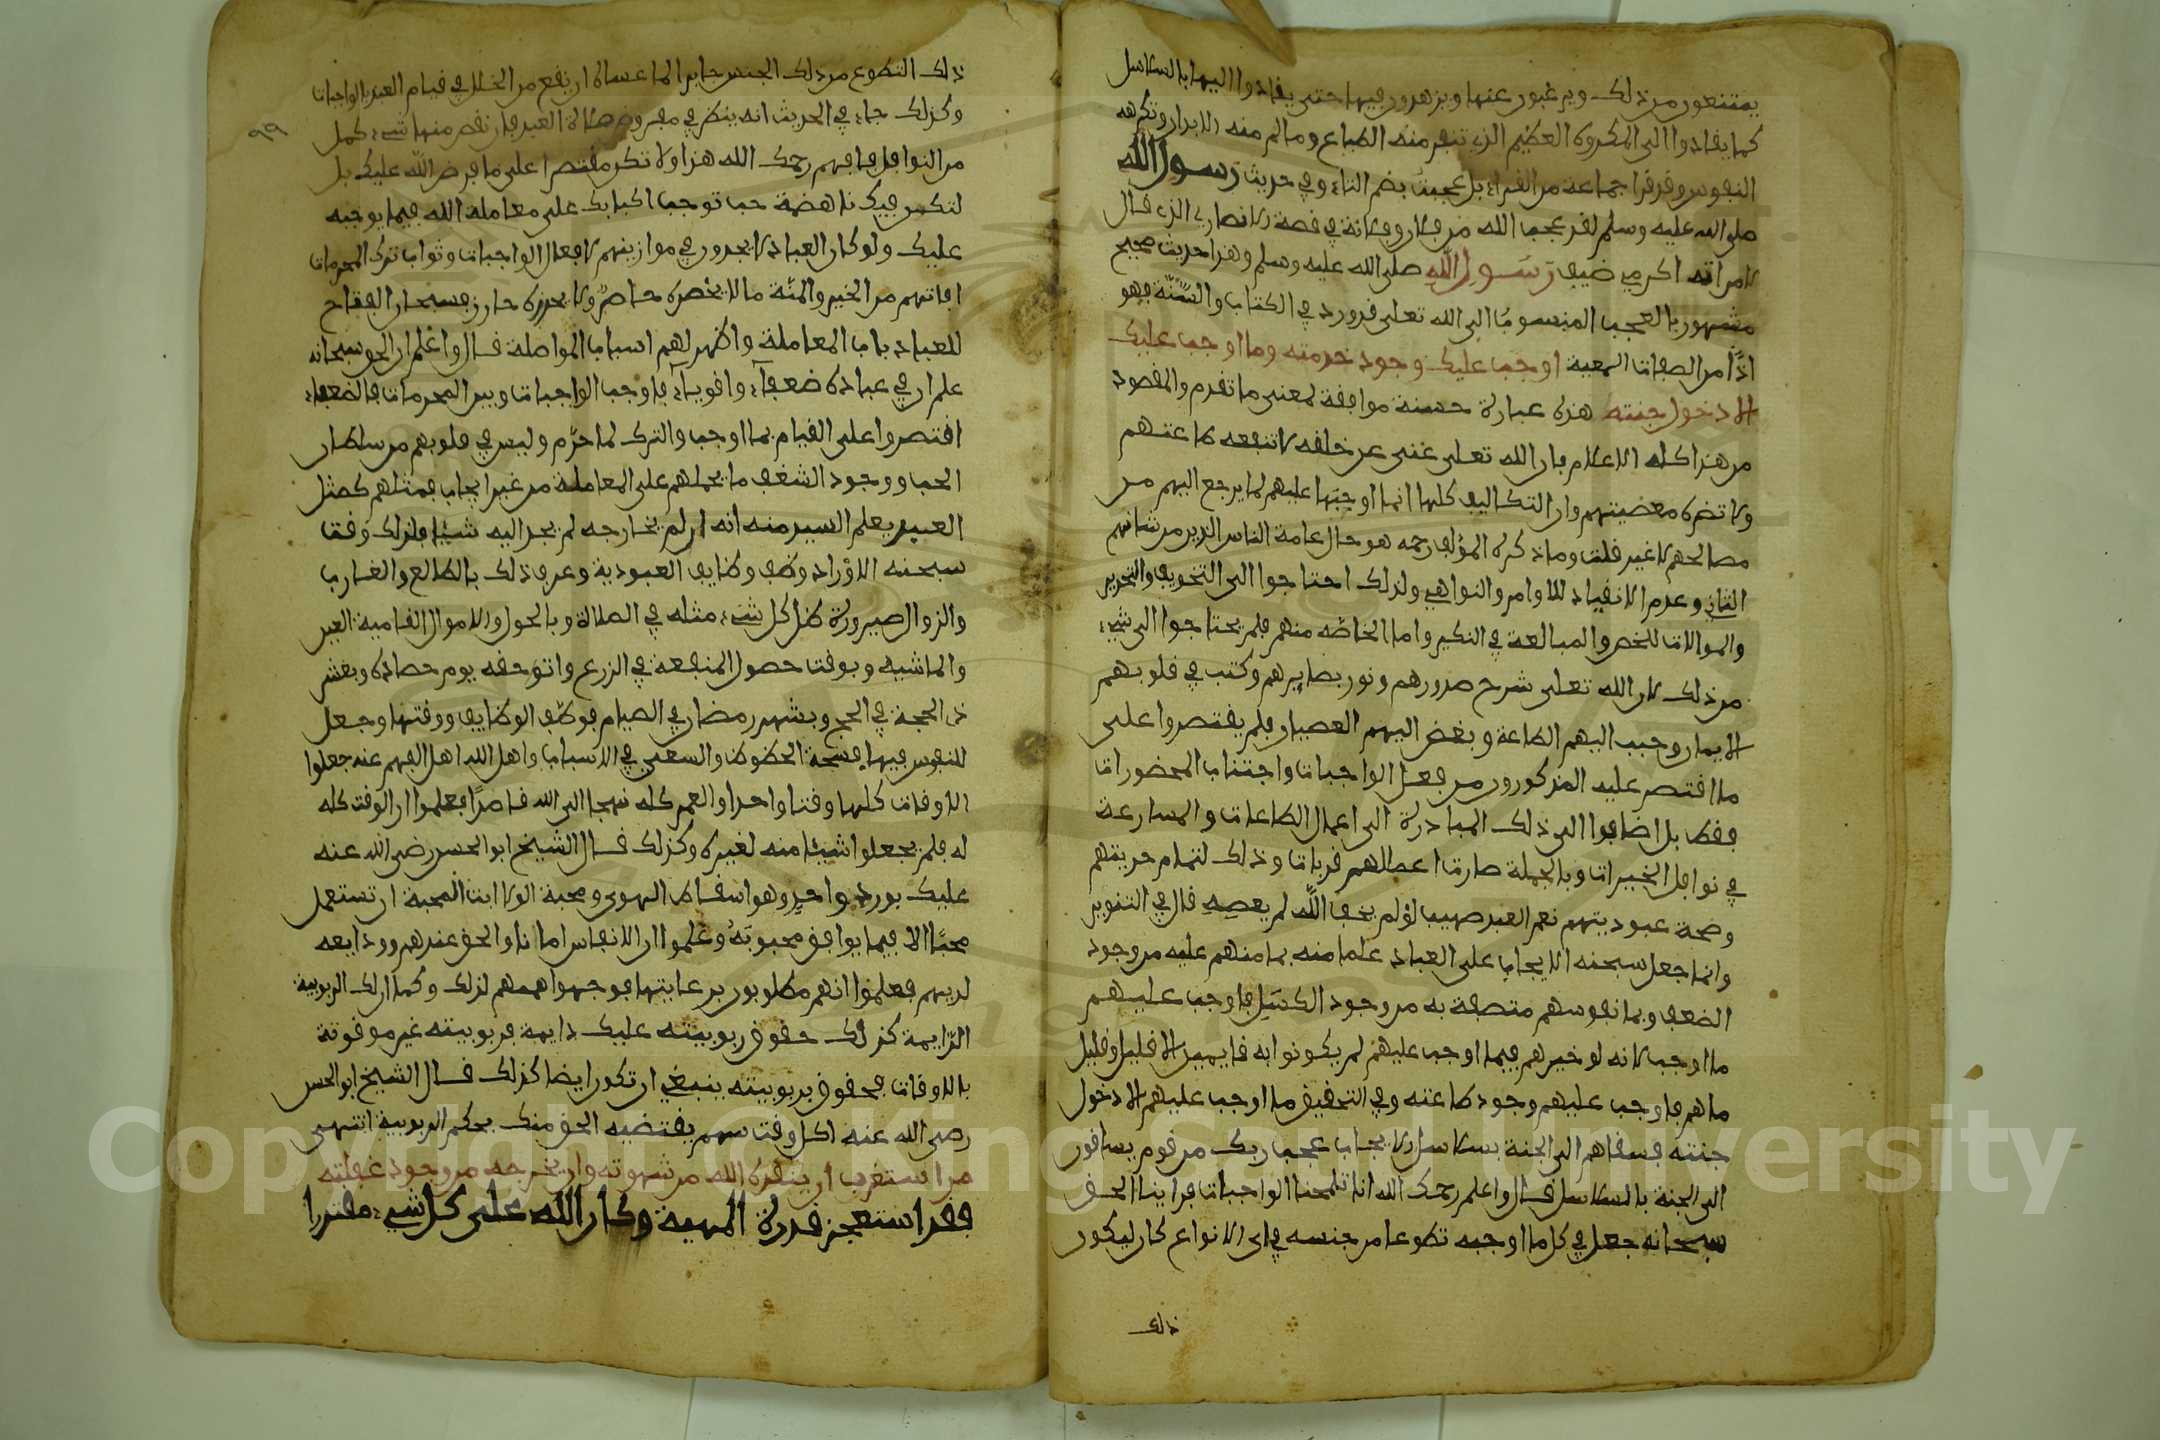 يمتنعون من ذلك ويرغبون عنها ويزهدون فيها حتى يقادوا إليها بالسلاسل
كما يقادوا الى المكروه العظيم الذي تنفر منه الطباع وتالم منه الابدان وتكرهه
النفوس وقد قرا جماعة من القراء بل عجبتُ بضم التاء وفي حديث رَسول الله
صلى الله عليه وسلم لقد عجب الله من فلان وفلانة في قصة الانصاري الذي قال
لامراته اكرمي ضيف رَسَولِ اللّهِ صلى الله عليه وسلم وهذا حديث صحيح
مشهور بالعجب المنسوب الى الله تعلى قد ورد في الكتاب والسُّنّة فهو
اذًا من الصفات السمعية اوجب عليك وجود خدمته وما اوجب عليك
الا دخول جنته هذه عبارة حسنة موافقة لمعنى ما تقدم والمقصود
من هذا كله الاعلام بان الله تعلى غني عن خلقه لا تنفعه طاعتهم
ولا تضره معصيتهم وان التكاليف كلها انما اوجبَها عليهم لما يرجع اليهم من
مصالحهم لا غير قلت وما ذكره المؤلف رحمه هو حال عامة الناس الذين من شانهم
التاني وعدم الانقياد للاوامر والنواهي ولذلك احتاجوا الى التخويف والتحذير
والموالات للحض والمبالغة في النكير واما الخاصّه منهم فلم يحتاجوا الى شيء
من ذلك لان الله تعلى شرح صدورهم ونور بصايرهم وكتب في قلوبهم
الايمان وحبب اليهم الطاعة وبغض اليهم العصيان فلم يقتصروا على
ما اقتصر عليه المذكورون من فعل الواجبات واجتناب المحضورات
فقط بل اضافوا الى ذلك المبادرة الى اعمال الطاعات والمسارعة
في نوافل الخيرات وبالجملة صارت اعمالهم قربات وذلك لتمام حريتهم
وصحة عبوديتهم نعم العبد صهيب لوْ لم يخف اللّه لم يعصِهِ قال في التنوير
وانما جعل سبحنه الايجاب على العباد علما منه بما هم عليه من وجود
الضعف وبما نفوسهم متصفة به من وجود الكسَل فاوجب عليهم
ما اوجب لانه لو خيرهم فيما اوجب عليهم لم يكونوا به قايمين الا قليل وقليل
ما هم فاوجب عليهم وجود طاعته وفي التحقيق ما اوجب عليهم الا دخول
جنته فساقهم الى الجنة بسلاسل الايجاب عجب ربك من قوم يساقون
الى الجنة بالسلاسل قال واعلم رحمك الله انا تلمحنا الواجبات فراينا الحق
سبحانه جعل في كل ما اوجبه تطوعا من جنسه في اي الانواع كان ليكون
ذلك
ذلك التطوع من ذلك الجنس جابرا لما عساه ان يقع من الخلل في قيام العبد بالواجبات
وكذلك جاء في الحديث انه ينظر في مفروض صلاة العبد فان نقص منها شيء كمل
٩٩
من النوافل فافهم رحمك الله هذا ولا تكن مقتصرا على ما فرض اللّه عليك بل
لتكن فيك ناهضة حب توجب اكبابك على معاملة الله فيما يوجبه
عليك ولو كان العباد لا يجدون في موازينهم الا فعل الواجبات وثواب ترك المحرمات
لفاتهم من الخير والمنّة ما لا يحصره حاصرٌ ولا يحزره حازر فسبحان الفتاح
للعباد باب المعاملة واظهر لهم اسباب المواصلة قال واعْلم ان الحق سبحانه
علم ان في عباده ضعفآء واقويآء فاوجب الواجبات وبين المحرمات فالضعفاء
اقتصروا على القيام بما اوجب والترك لما حرّم وليس في قلوبهم من سلطان
الحب ووجود الشغف ما يحملهم على المعاملة من غير ايجاب فمثلهم كمثل
العبد يعلم السيد منه انه ان لم يخارجه لم يجد اليه شيْا فلذلك وقت
سبحنه الاوْراد وظف وظايف العبودية وعرف ذلك بالطالع والغارب
والزوال صيرورة ظل كل شيء مثله في الصلاة وبالحول في الاموال النامية العين
والماشية وبوقت حصول المنفعة في الزرع واتو حقه يوم حصاده وبعشر
ذي الحجة في الحج وبشهر رمضان في الصيام فوظف الوظايف ووقتها وجعل
للنفوس فيها فسحة الحظوظ والسعي في الاسباب واهل الله اهل الفهم عنه جعلوا
الاوقات كلها وقتا واحدا والعمر كله نهجا الى الله قاصدًا فعلموا ان الوقت كله
له فلم يجعلوا شيئا منه لغيره وكذلك قال الشيخ ابو الحسن رضى الله عنه
عليك بورد واحِد وهو اسقاط الهوى ومحبة المولا ابت المحبة ان تستعمل
محبًّا الا فيما يوافق محبوبَهُ وعَلموا ان الانفاس امانات الحق عندهم وودايعه
لديهم فعلموا انهم مطلوبون برعايتها فوجهوا هممهم لذلك وكما ان لك الربوبية
الدّايمة كذلك حقوق ربوبيته عليك دايمة فربوبيته غير موقوتة
بالاوقات فحقوق ربوبيته ينبغي ان تكون ايضا كذلك قال الشيخ ابو الحسن
رضى الله عنه لكل وقت سهم يقتضيه الحق منك بحكم الربوبية انتهى
من استغرب ان ينقذه الله من شهوته وان يخرجه من وجود غفلته
فقد استعجز قدرة الهية وكان الله على كل شيء مقتدرا
Copyright © King Saud University